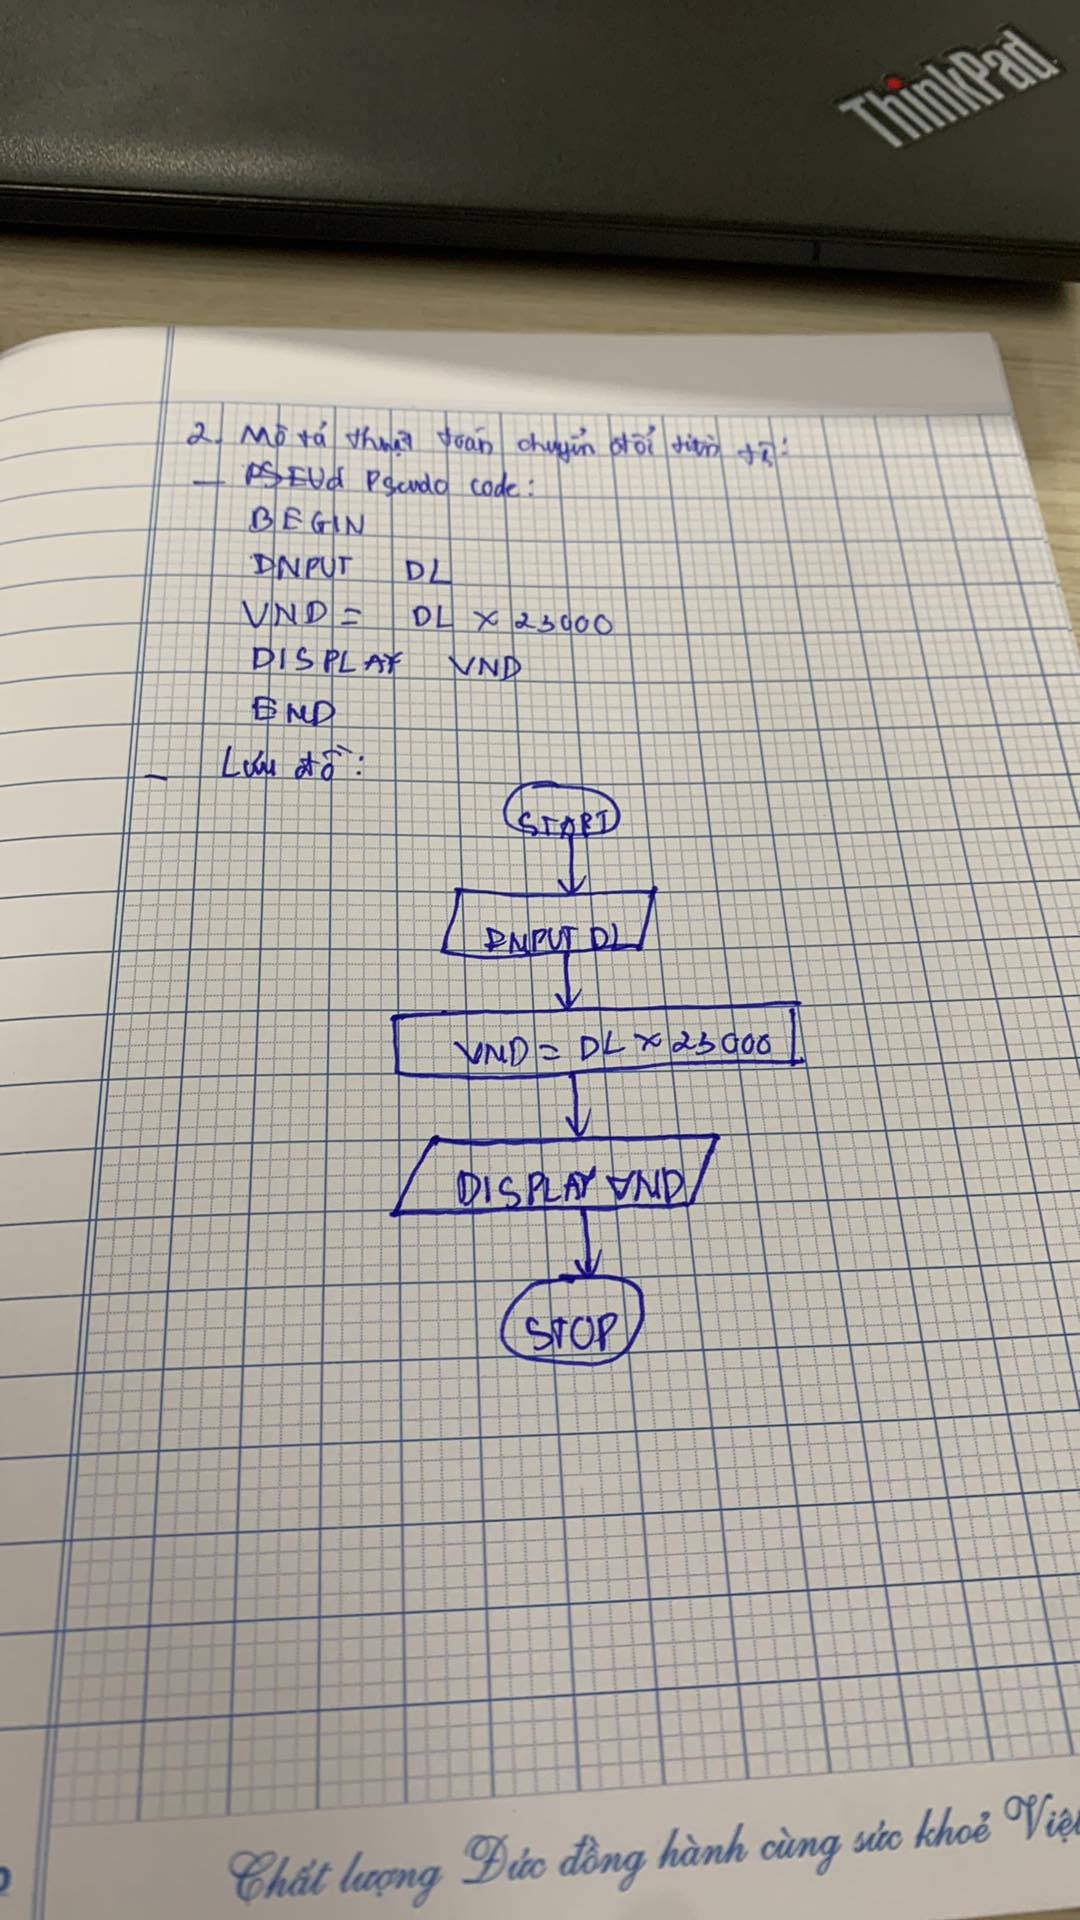 ThinkPad
2. Mô tả thuật toán chuyển đổi tiền tệ:
- PSEUd Pseudo code:
BEGIN
INPUT DL
VND = DL x 23000
DISPLAY VND
END
- Lưu đồ:
START
INPUT DL
VND = DL x 23000
DISPLAY VND
STOP
Chất lượng Đức đồng hành cùng sức khoẻ Việt